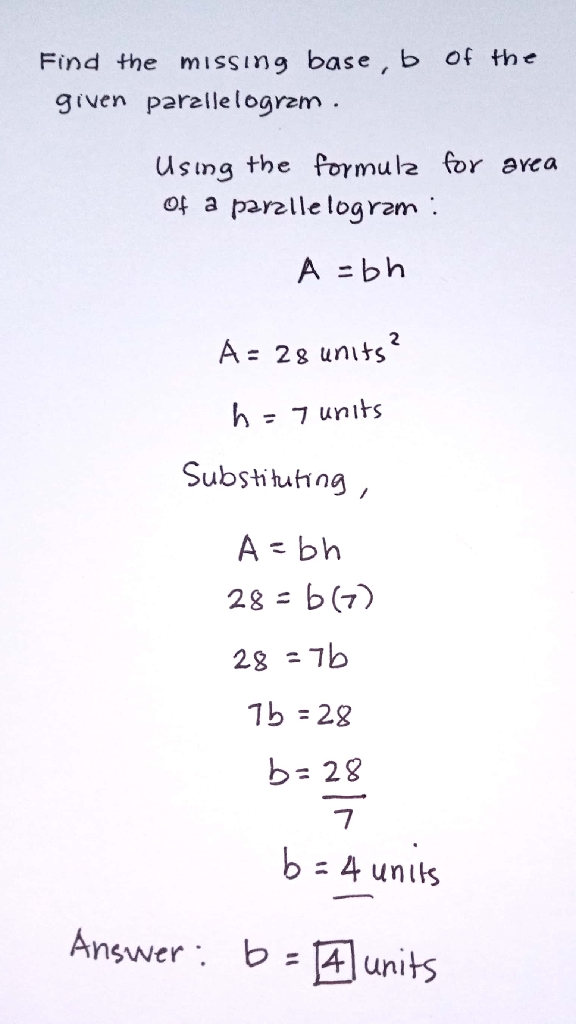 Find the missing base, b of the
given parallelogram.
Using the formula for area
of a parallelogram:
A = bh
A = 28 units²
h = 7 units
Substituting,
A = bh
28 = b(7)
28 = 7b
7b = 28
b = 28
7
b = 4 units
Answer: b = 4 units